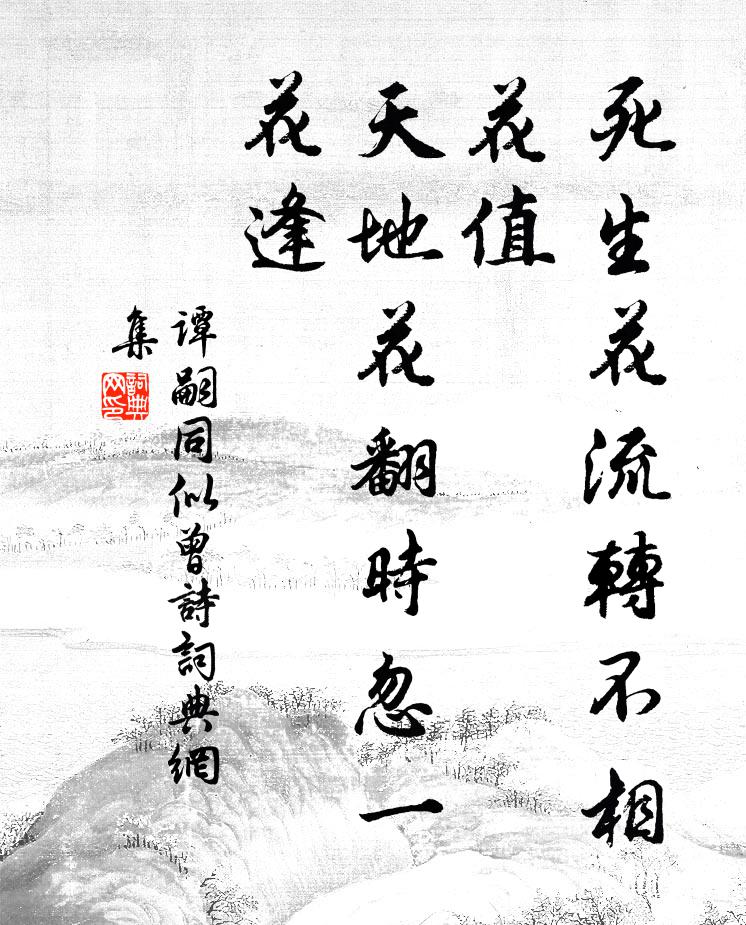 死生花流轉不相
花值
天地花翻時忽一
花逢
譚嗣同似曾詩詞典網
集
詞典
网印